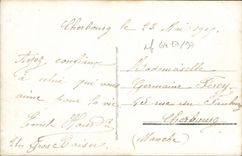 Cherbourg le 23 Mai 1917
Ayez confiance
à celui qui vous
aime pour la vie
Emile
Un Gros Baiser
Mademoiselle
Germaine
rue du Faubourg
Cherbourg
(Manche)